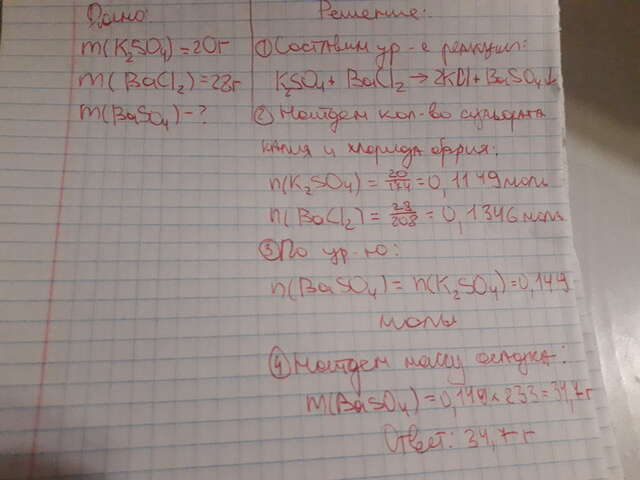 Дано:
m(K₂SO₄)=20г
m(BaCl₂)=28г
m(BaSO₄)-?
Решение:
① Составим ур-е реакции:
K₂SO₄ + BaCl₂ → 2KCl + BaSO₄↓
② Найдем кол-во сульфата
калия и хлорида бария:
n(K₂SO₄) = 20/174 = 0,1149 моль
n(BaCl₂) = 28/208 = 0,1346 моль
③ По ур-ю:
n(BaSO₄) = n(K₂SO₄) = 0,1149
моль
④ Найдем массу осадка:
m(BaSO₄) = 0,1149 × 233 = г
Ответ: г